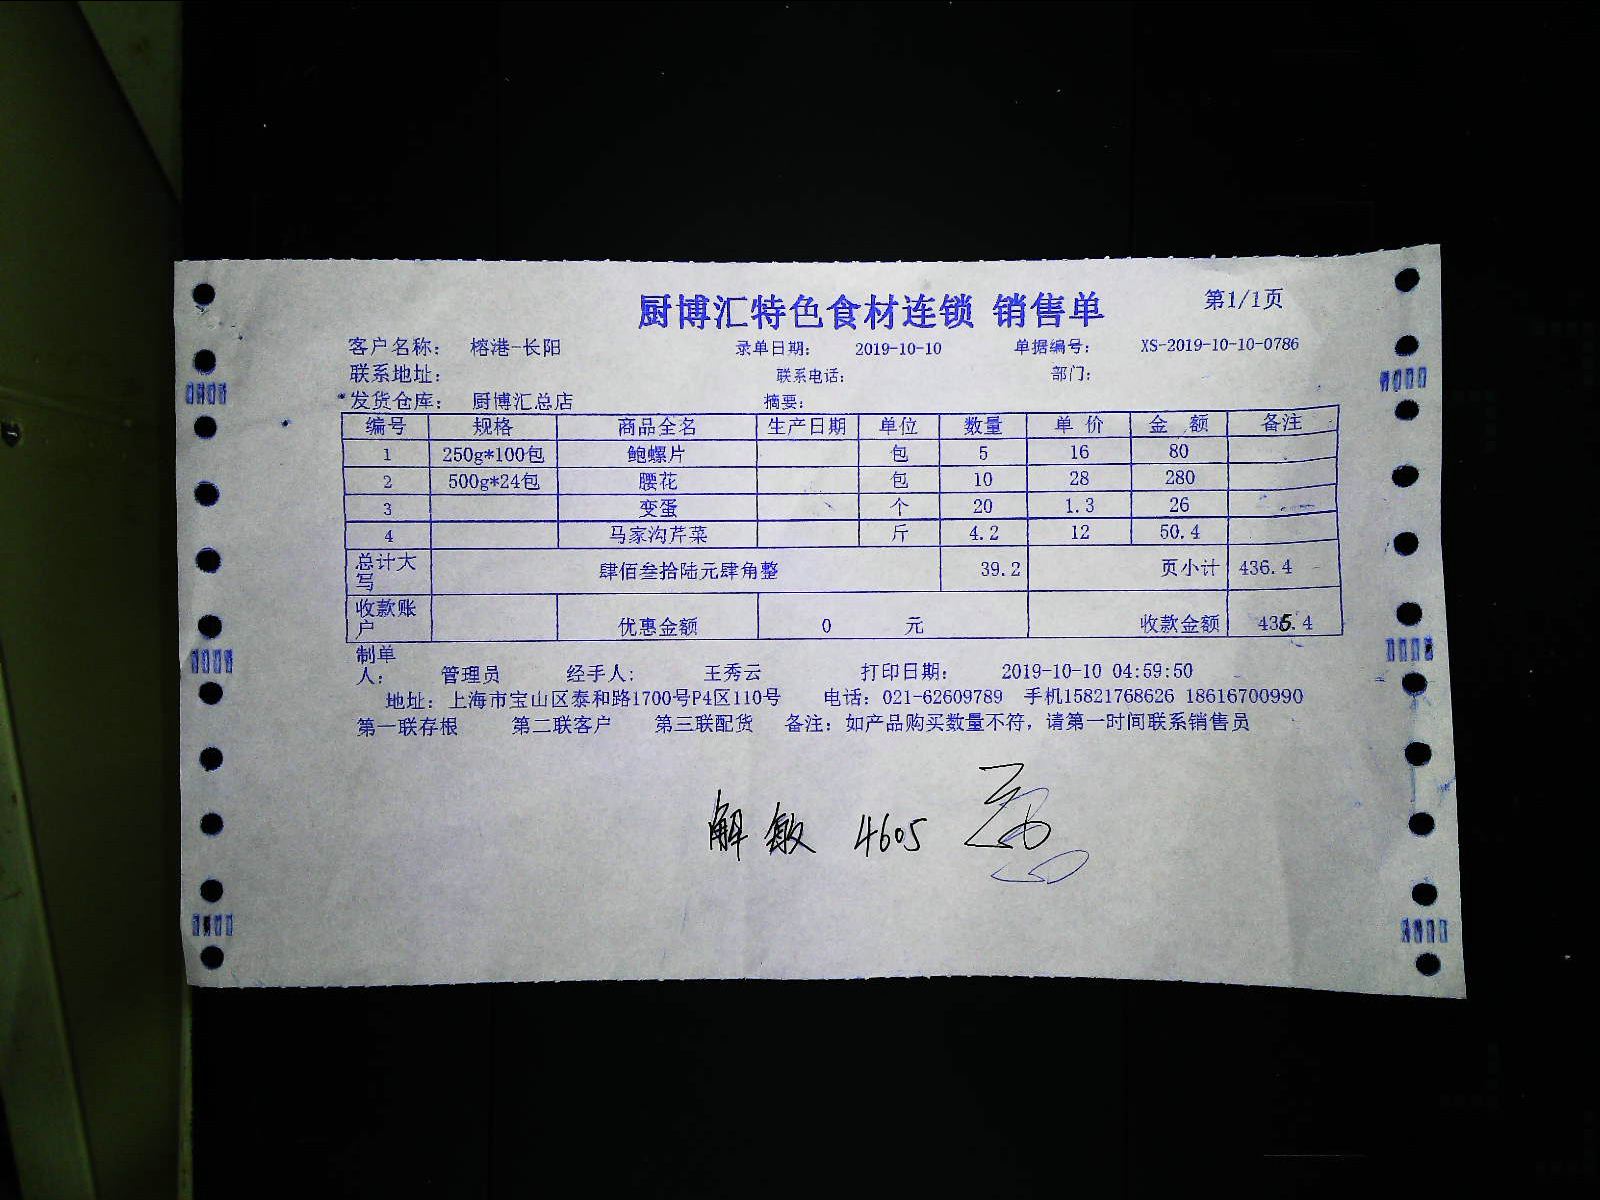 厨博汇特色食材连锁 销售单 第1/1页
客户名称： 榕港-长阳 录单日期： 2019-10-10 单据编号： XS-2019-10-10-0786
联系地址： 联系电话： 部门：
发货仓库： 厨博汇总店 摘要：
编号 规格 商品全名 生产日期 单位 数量 单 价 金 额 备注
1 250g*100包 鲍螺片 包 5 16 80
2 500g*24包 腰花 包 10 28 280
3 变蛋 个 20 1.3 26
4 马家沟芹菜 斤 4.2 12 50.4
总计大写 肆佰叁拾陆元肆角整 39.2 页小计 436.4
收款账户 优惠金额 0 元 收款金额 435.4
制单人： 管理员 经手人： 王秀云 打印日期： 2019-10-10 04:59:50
地址：上海市宝山区泰和路1700号P4区110号 电话：021-62609789 手机15821768626 18616700990
第一联存根 第二联客户 第三联配货 备注：如产品购买数量不符，请第一时间联系销售员
解敏 4605